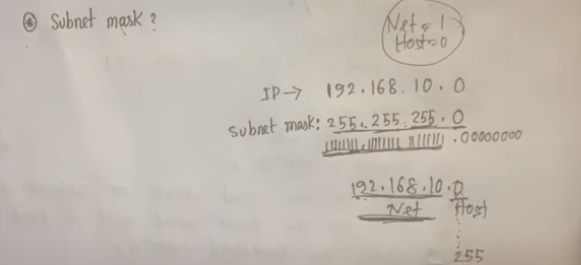 * Subnet mask?
Net = 1
Host = 0
IP → 192.168.10.0
Subnet mask: 255.255.255.0
11111111.11111111.11111111.00000000
192.168.10.0
Net Host
255